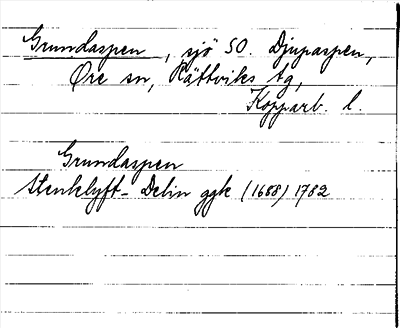 Grundaspen, sjö SO. Djupaspen,
Øre sn, Rättviks tg,
Kopparb. l.
Grundaspen
Stenklyft - Delin ggk (1688) 1782